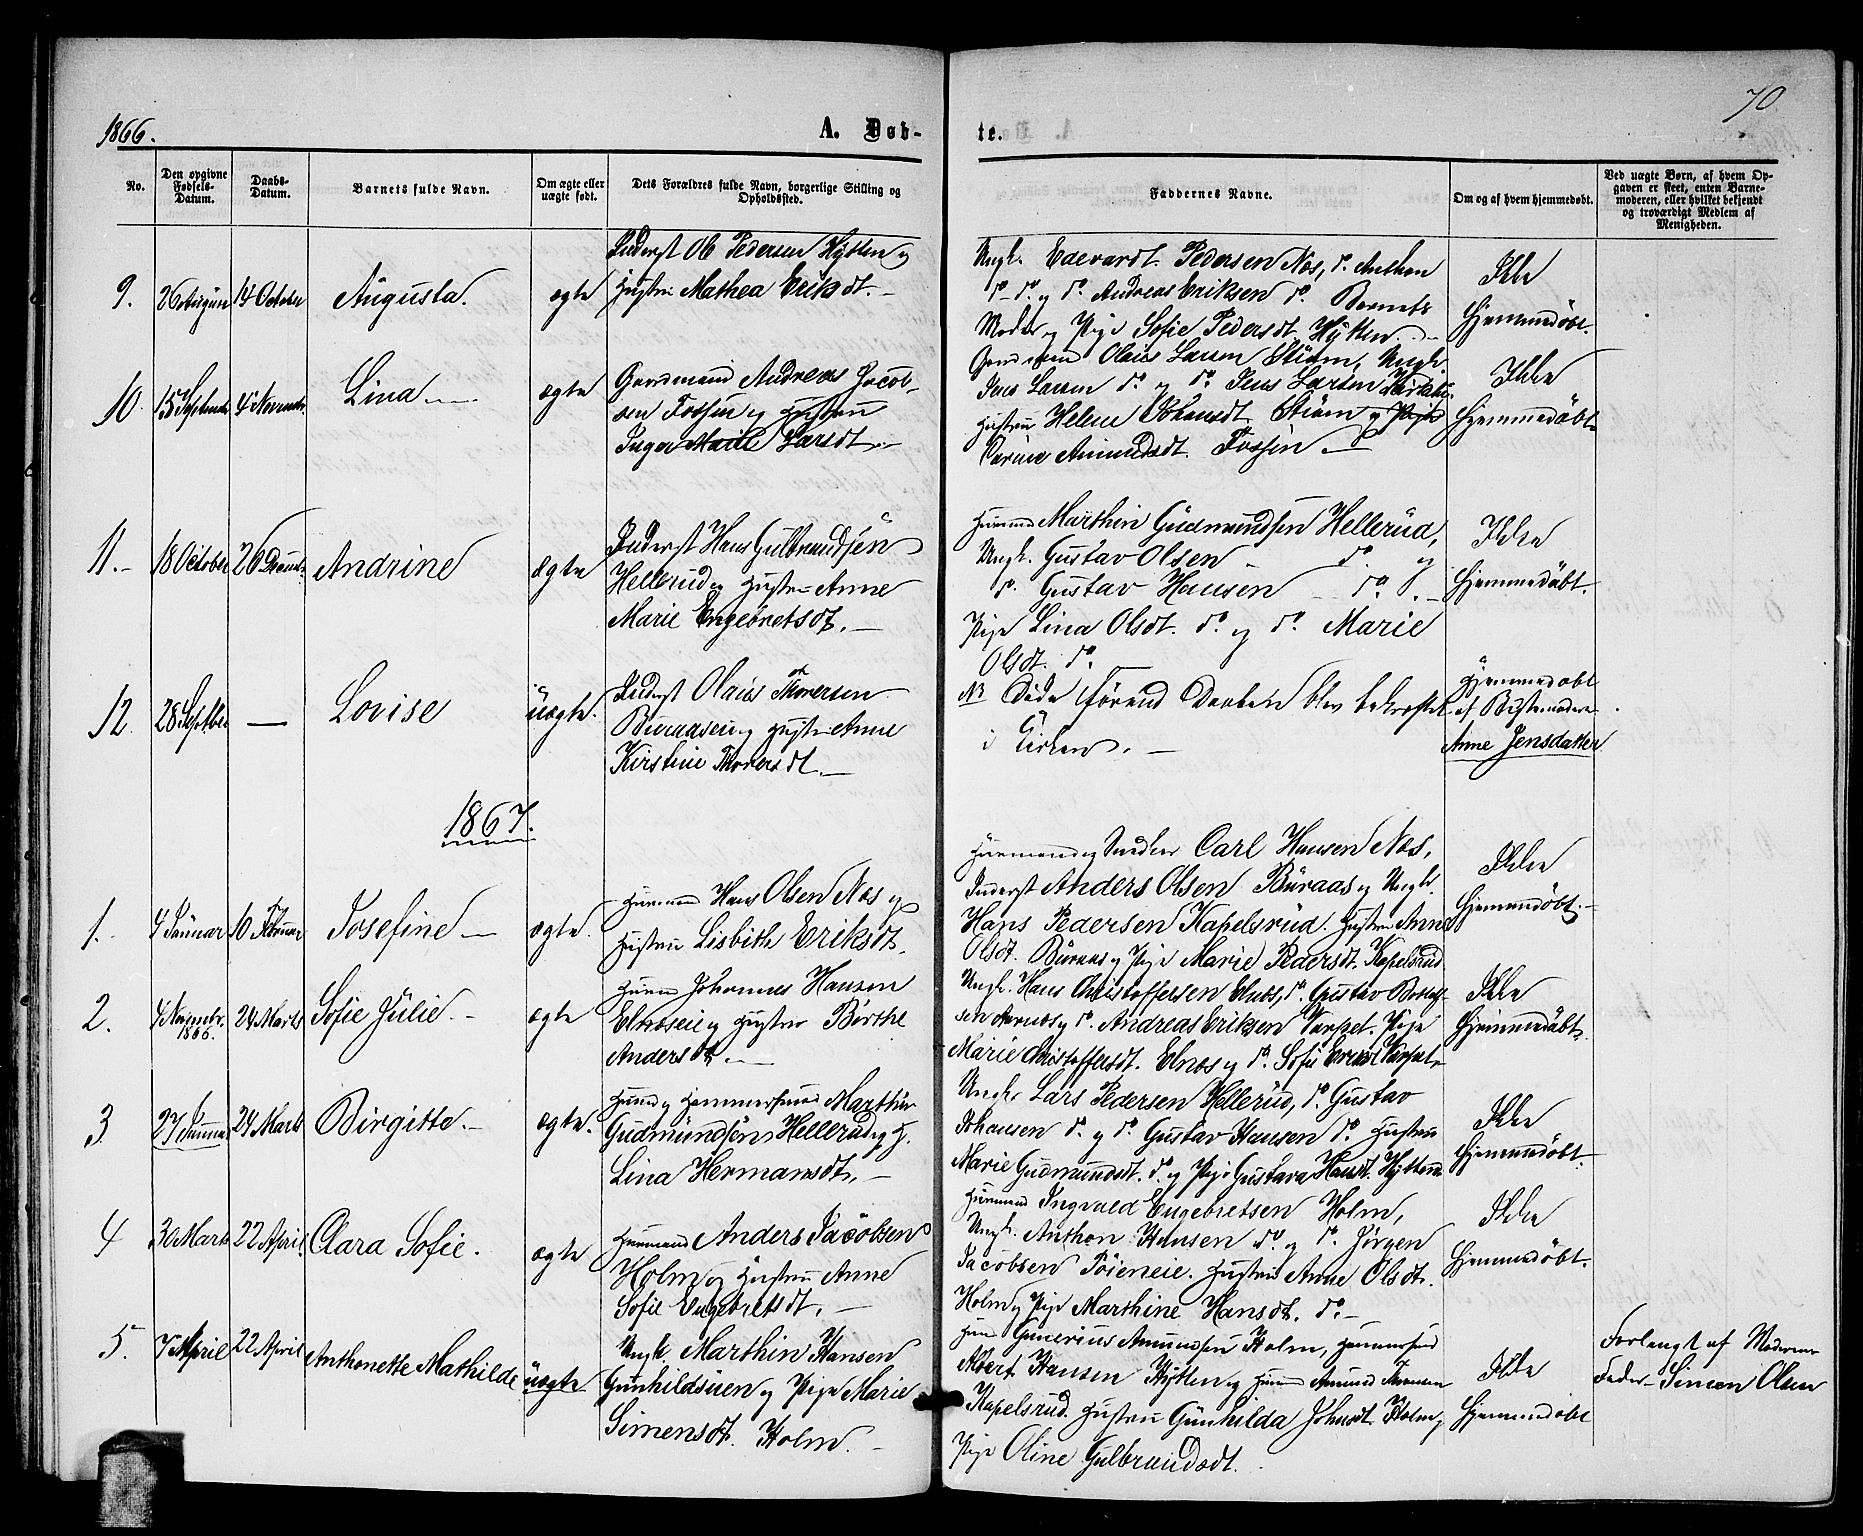 1866.
A. Døb-
te.
70
No.
Den opgivne Fødsels-Datum.
Daabs-Datum.
Barnets fulde Navn.
Om ægte eller uægte født.
Dets Forældres fulde Navn, borgerlige Stilling og Opholdssted.
Faddernes Navne.
Om og af hvem hjemmedøbt.
Ved uægte Børn, af hvem Op-
gaven er skeet, enten Barne-
moderen, eller hvilket bekjendt
og troværdigt Medlem af
Menigheden.
9. 26 August 14 October Augusta. ægte
Inderst Ole Pedersen Hytten og
Hustru Mathea Eriksdt. —
Ungk. Edevardt Pedersen Næs, do. Anthon
do - do. og do. Andreas Eriksen do. Barnets
Moder og Pige Sofie Pedersdt. Hytten. —
Ikke
Hjemmedøbt.
10. 15 September 4 November Lina — ægte
Gaardmand Andreas Jacob-
sen Fossen og Hustru
Inger Marie Larsdt. —
Gaardmand Olaus Larsen Strøm, Ungk.
Jens Larsen do. og do. Jens Larsen
Hustru Helene Johansdt. Strøm og Pige
Karine Amundsdt. Fossen —
Ikke
Hjemmedøbt.
11. — 18 October 26 December Andrine ægte
Inderst Hans Gulbrandsen
Hellerud og Hustru Anne
Marie Engebretsdt. —
Huusmand Marthin Gudmundsen Hellerud,
Ungk. Gustav Olsen do. og
do. Gustav Hansen — do. . —
Pige Lina Olsdt. do. og do. Marie
Olsdt. do.
Ikke
Hjemmedøbt.
12. 28 Septber — Lovise uægte.
Inderst Olaus Thoresen
Buraasen og Hustru Anne
Kirstine Thoresdt. —
NB Døde førend Daaben blev bekræftet
i Kirken. —
Hjemmedøbt
af Bestemoder
Anne Jensdatter
1867.
1. 4 Januar 10 Februar Josefine — ægte.
Huusmand Hans Olsen Næs og
Hustru Lisbeth Eriksdt.
Huusmand og Snedker Carl Hansen Næs,
Inderst Anders Olsen Buraas og Ungk.
Hans Pedersen Kapelsrud. Hustru Anne
Olsdt. Buraas og Pige Marie Pedersdt. Kapelsrud
Ikke
Hjemmedøbt. —
2. 4 Novembr. 1866. 24 Marts Sofie Julie. — ægte
Huusm Johannes Hansen
Elnæseie og Hustru Berthe
Andersdt. —
Ungk. Hans Christoffersen Elnæs, do. Gustav
og do. Andreas Eriksen Varpet. Pige
Marie Christoffersdt. Elnæs og do. Sofie Eriksdt Varpet.
Ikke
Hjemmedøbt.
3 27 Januar 24 Marts Birgitte. — ægte.
Huusm og Hammersmed Marthin
Gudmundsen Hellerud og H.
Lina Hermansdt. —
Ungk. Lars Pedersen Hellerud, do. Gustav
Johansen do. og do. Gustav Hansen do. Hustru
Marie Gudmundsdt. do. og Pige Gustava Hansdt. Hytten
Ikke
Hjemmedøbt.
4 30 Marts 22 April Clara Sofie. ægte
Huusmand Anders Jacobsen
Holm og Hustru Anne
Sofie Engebretsdt. —
Huusmand Ingvald Engebretsen Holm,
Ungk. Anthon Hansen do. og do. Jørgen
Jacobsen Føieneie. Hustru Anne Olsdt.
Holm og Pige Marthine Hansdt. do. —
Ikke
Hjemmedøbt.
5. 7 April 22 April Anthonette Mathilde uægte
Ungk Marthin Hansen
Gunhildsuen og Pige Marie
Simensdt. Holm. —
Huusm Gunerius Amundsen Holm, Hammersmed
Albert Hansen Hytten og Huusm Amund Amundsen
Kapelsrud. Hustru Gunhilda Johnsdt. Holm og
Pige Oline Gulbrandsdt.
Ikke
Hjemmedøbt
Forlangt af Moderens
Fader Simen Olsen